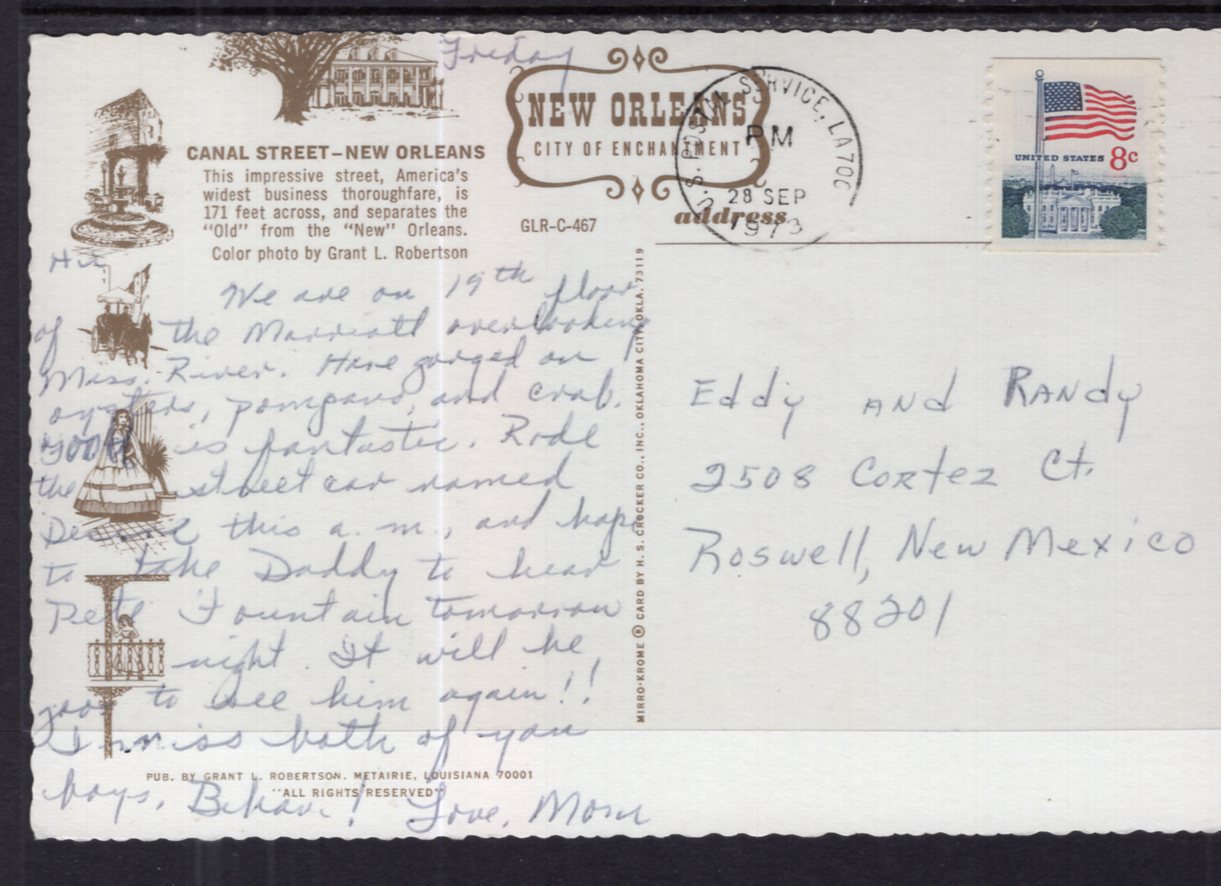 Friday
NEW ORLEANS
CITY OF ENCHANTMENT
U.S. POSTAL SERVICE, LA 70
PM
28 SEP
1973
UNITED STATES 8c
CANAL STREET–NEW ORLEANS
This impressive street, America's
widest business thoroughfare, is
171 feet across, and separates the
"Old" from the "New" Orleans.
Color photo by Grant L. Robertson
GLR-C-467
address
Hi,
We are on 19th floor
of the Marriott overlooking
Miss. River. Have gorged on
oysters, pompano, and crab.
Food is fantastic. Rode
the streetcar named
Desire this a.m., and hope
to take Daddy to hear
Pete Fountain tomorrow
night. It will be
good to see him again!!
I miss both of you
boys. Behave! Love, Mom
PUB. BY GRANT L. ROBERTSON. METAIRIE, LOUISIANA 70001
"ALL RIGHTS RESERVED"
MIRRO-KROME ® CARD BY H. S. CROCKER CO., INC., OKLAHOMA CITY, OKLA. 73119
Eddy and Randy
2508 Cortez Ct.
Roswell, New Mexico
88201